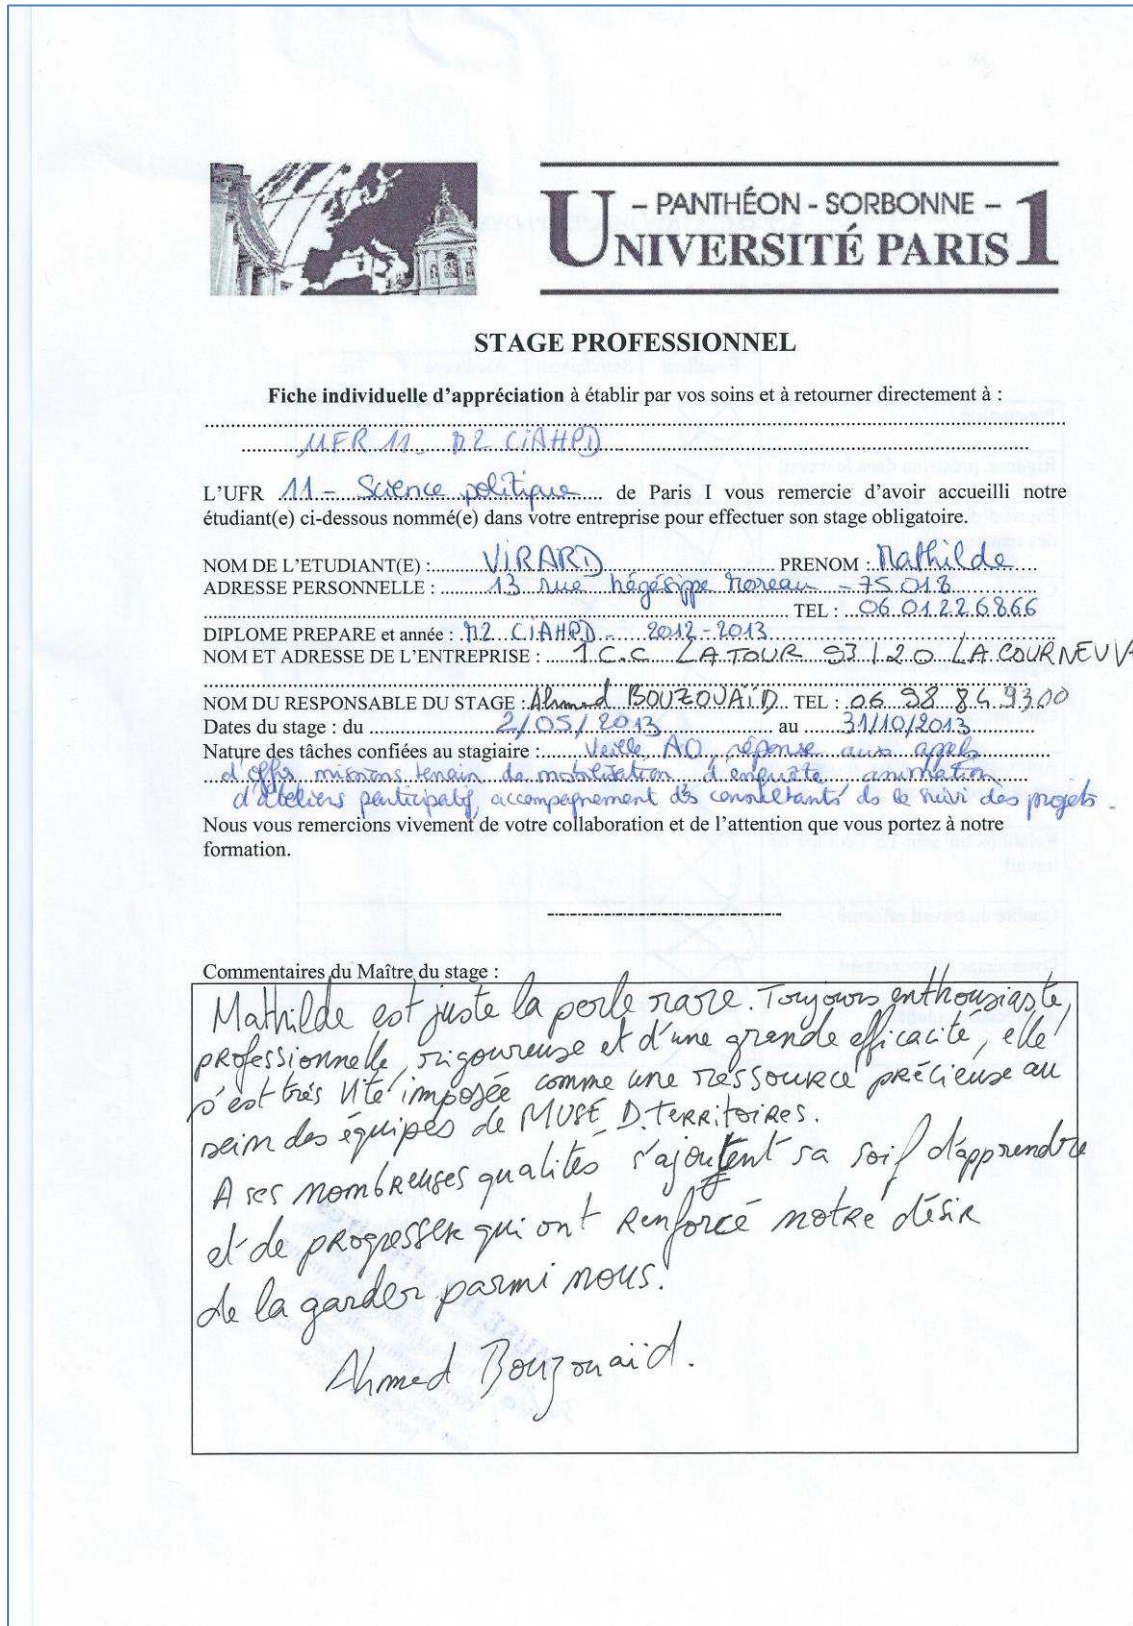 – PANTHÉON - SORBONNE –
UNIVERSITÉ PARIS 1
STAGE PROFESSIONNEL
Fiche individuelle d’appréciation à établir par vos soins et à retourner directement à :
UFR 11. M2 CiAHPD
L’UFR 11 - Science politique de Paris I vous remercie d’avoir accueilli notre
étudiant(e) ci-dessous nommé(e) dans votre entreprise pour effectuer son stage obligatoire.
NOM DE L’ETUDIANT(E) : VIRARD PRENOM : Mathilde
ADRESSE PERSONNELLE : 13 rue hégésippe Moreau - 75 018
TEL : 06 01 22 68 66
DIPLOME PREPARE et année : M2 CIAHPD - 2012-2013
NOM ET ADRESSE DE L’ENTREPRISE : 1 C.C LA TOUR 93120 LA COURNEUV
NOM DU RESPONSABLE DU STAGE : Ahmed BOUZOUAÏD TEL : 06 98 84 93 00
Dates du stage : du 2/05/2013 au 31/10/2013
Nature des tâches confiées au stagiaire : Veille AO, réponse aux appels
d'offres missions terrain de mobilisation d'enquête animation
d'ateliers participatif, accompagnement des consultants ds le suivi des projets.
Nous vous remercions vivement de votre collaboration et de l’attention que vous portez à notre
formation.
Commentaires du Maître du stage :
Mathilde est juste la perle rare. Toujours enthousiaste,
professionnelle, rigoureuse et d'une grande efficacité, elle
s'est très vite imposée comme une ressource précieuse au
sein des équipes de MUSE D. TERRITOIRES.
A ses nombreuses qualités s'ajoutent sa soif d'apprendre
et de progresser qui ont renforcé notre désir
de la garder parmi nous.
Ahmed Bouzouaïd.